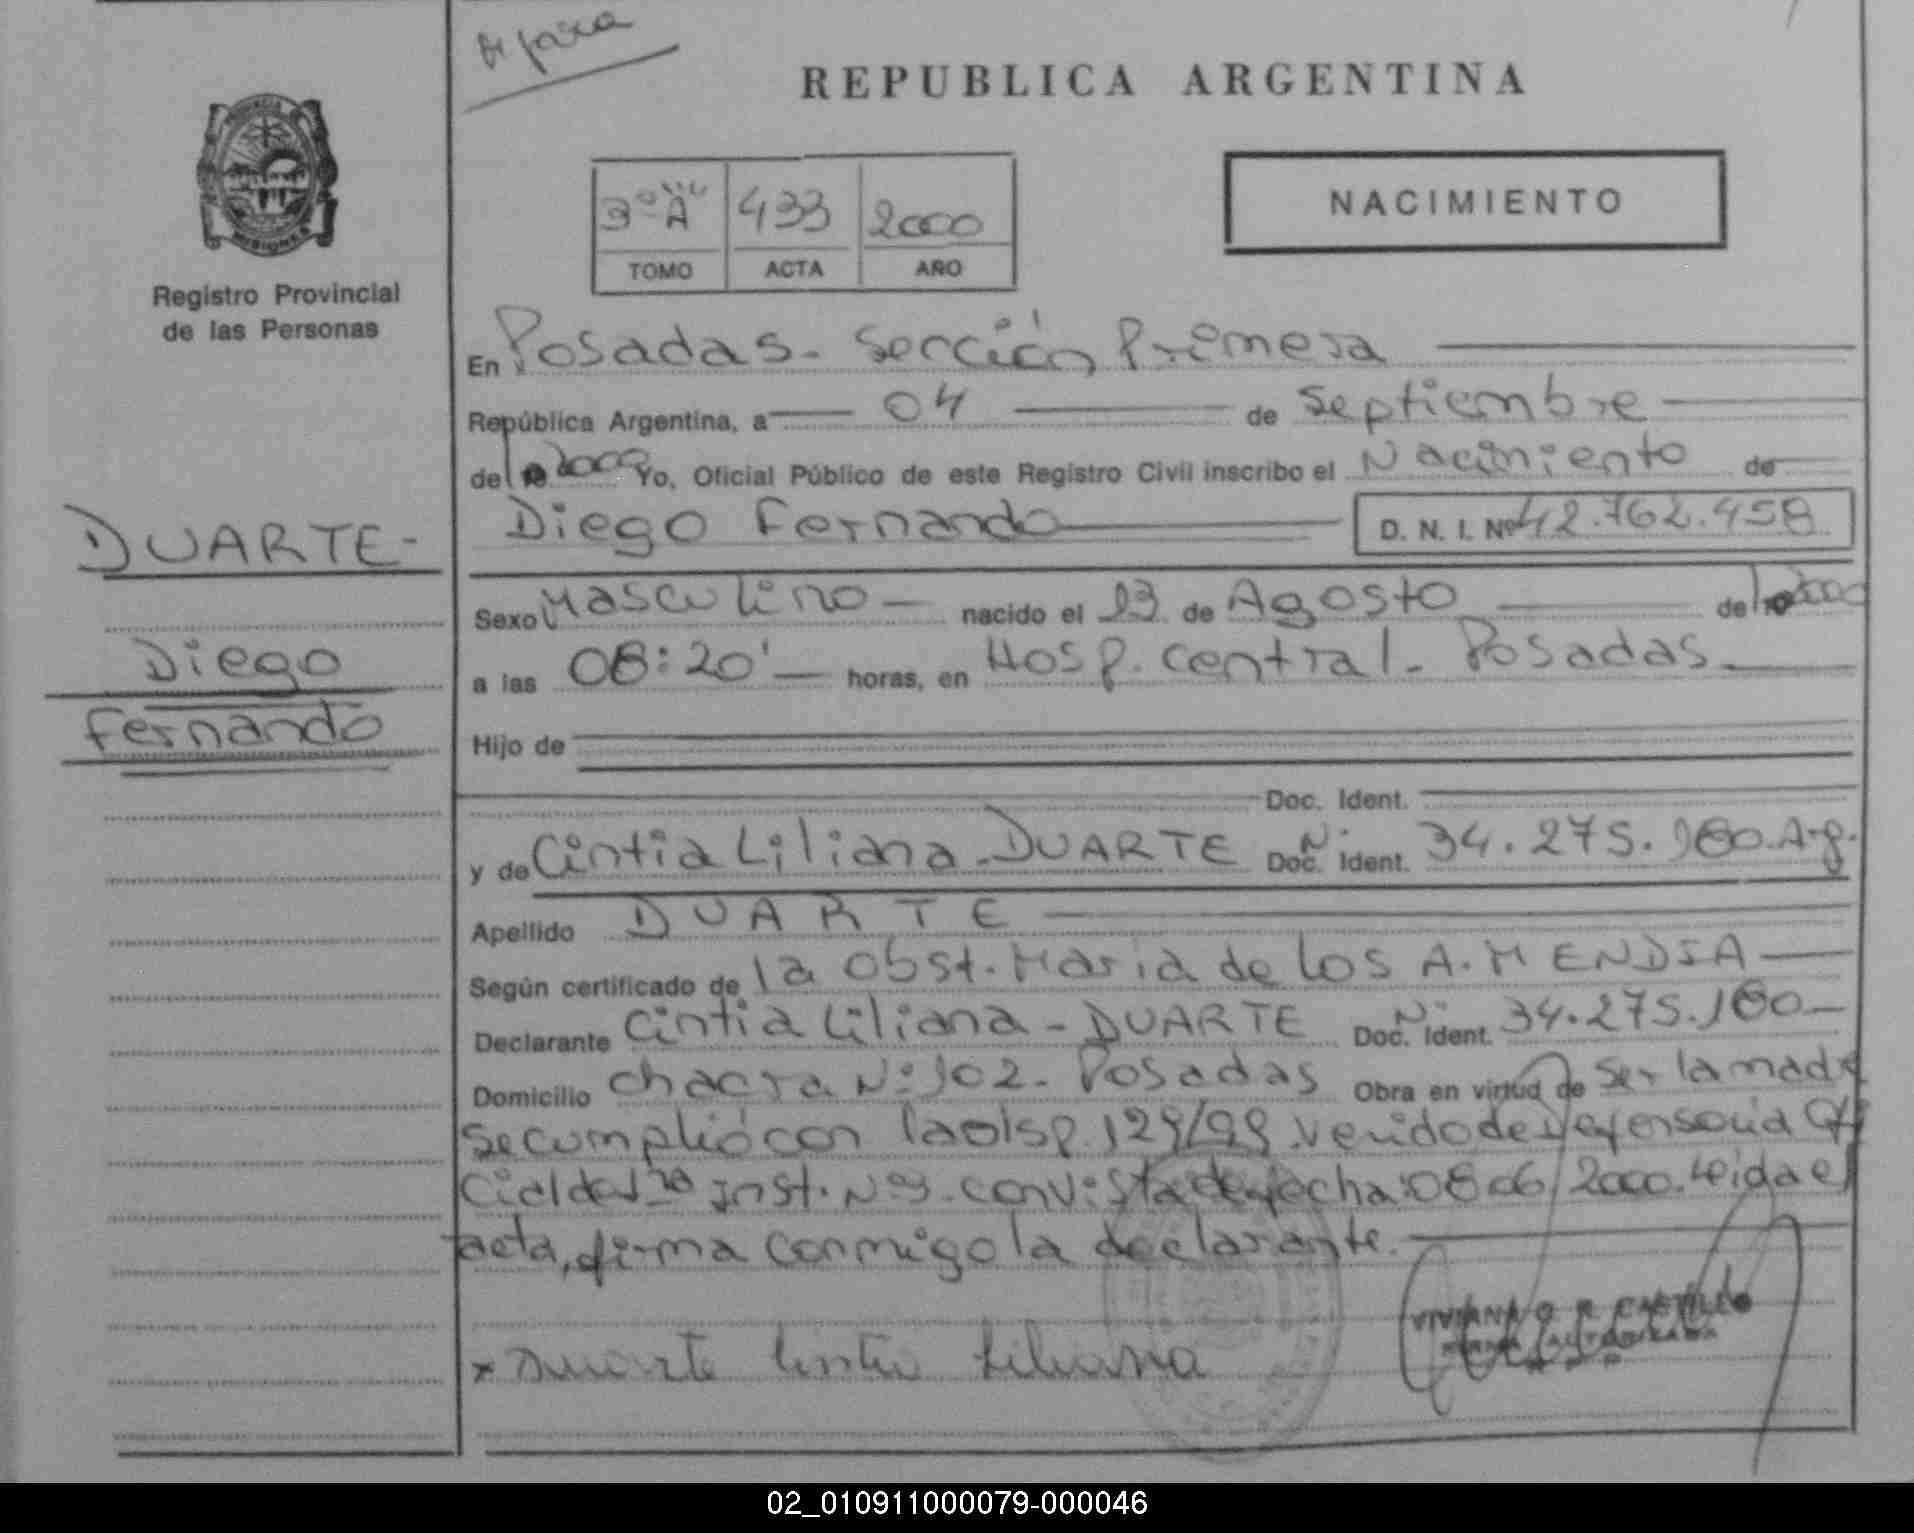 REPUBLICA ARGENTINA
PROVINCIA
MISIONES
Registro Provincial
de las Personas
3º "A" 433 2000
TOMO ACTA AÑO
NACIMIENTO
En Posadas - Sección Primera
República Argentina, a 04 de Septiembre
del 2000 Yo, Oficial Público de este Registro Civil inscribo el Nacimiento de
Diego Fernando D. N. I. Nº 42.762.458
DUARTE-
Diego
Fernando
Sexo Masculino nacido el 13 de Agosto de 2000
a las 08:20' horas, en Hosp. Central - Posadas
Hijo de
Doc. Ident.
y de Cintia Liliana - DUARTE Doc. Ident. Nº 34.275.160. Arg.
Apellido DUARTE
Según certificado de la Obst. Maria de los A. MENDIA
Declarante Cintia Liliana - DUARTE Doc. Ident. Nº 34.275.160-
Domicilio chacra Nº 102 - Posadas Obra en virtud de ser la madre
se cumplió con la Disp. 129/99. venido de Defensoria Ofi
cial de 1ra Inst. Nº 3. con vista de fecha: 08 06/2000. Leida el
acta, firma conmigo la declarante.
x Duarte Cintia Liliana
VIVIANA R. CASTILLO
FIRMA AUTORIZADA
02_010911000079-000046